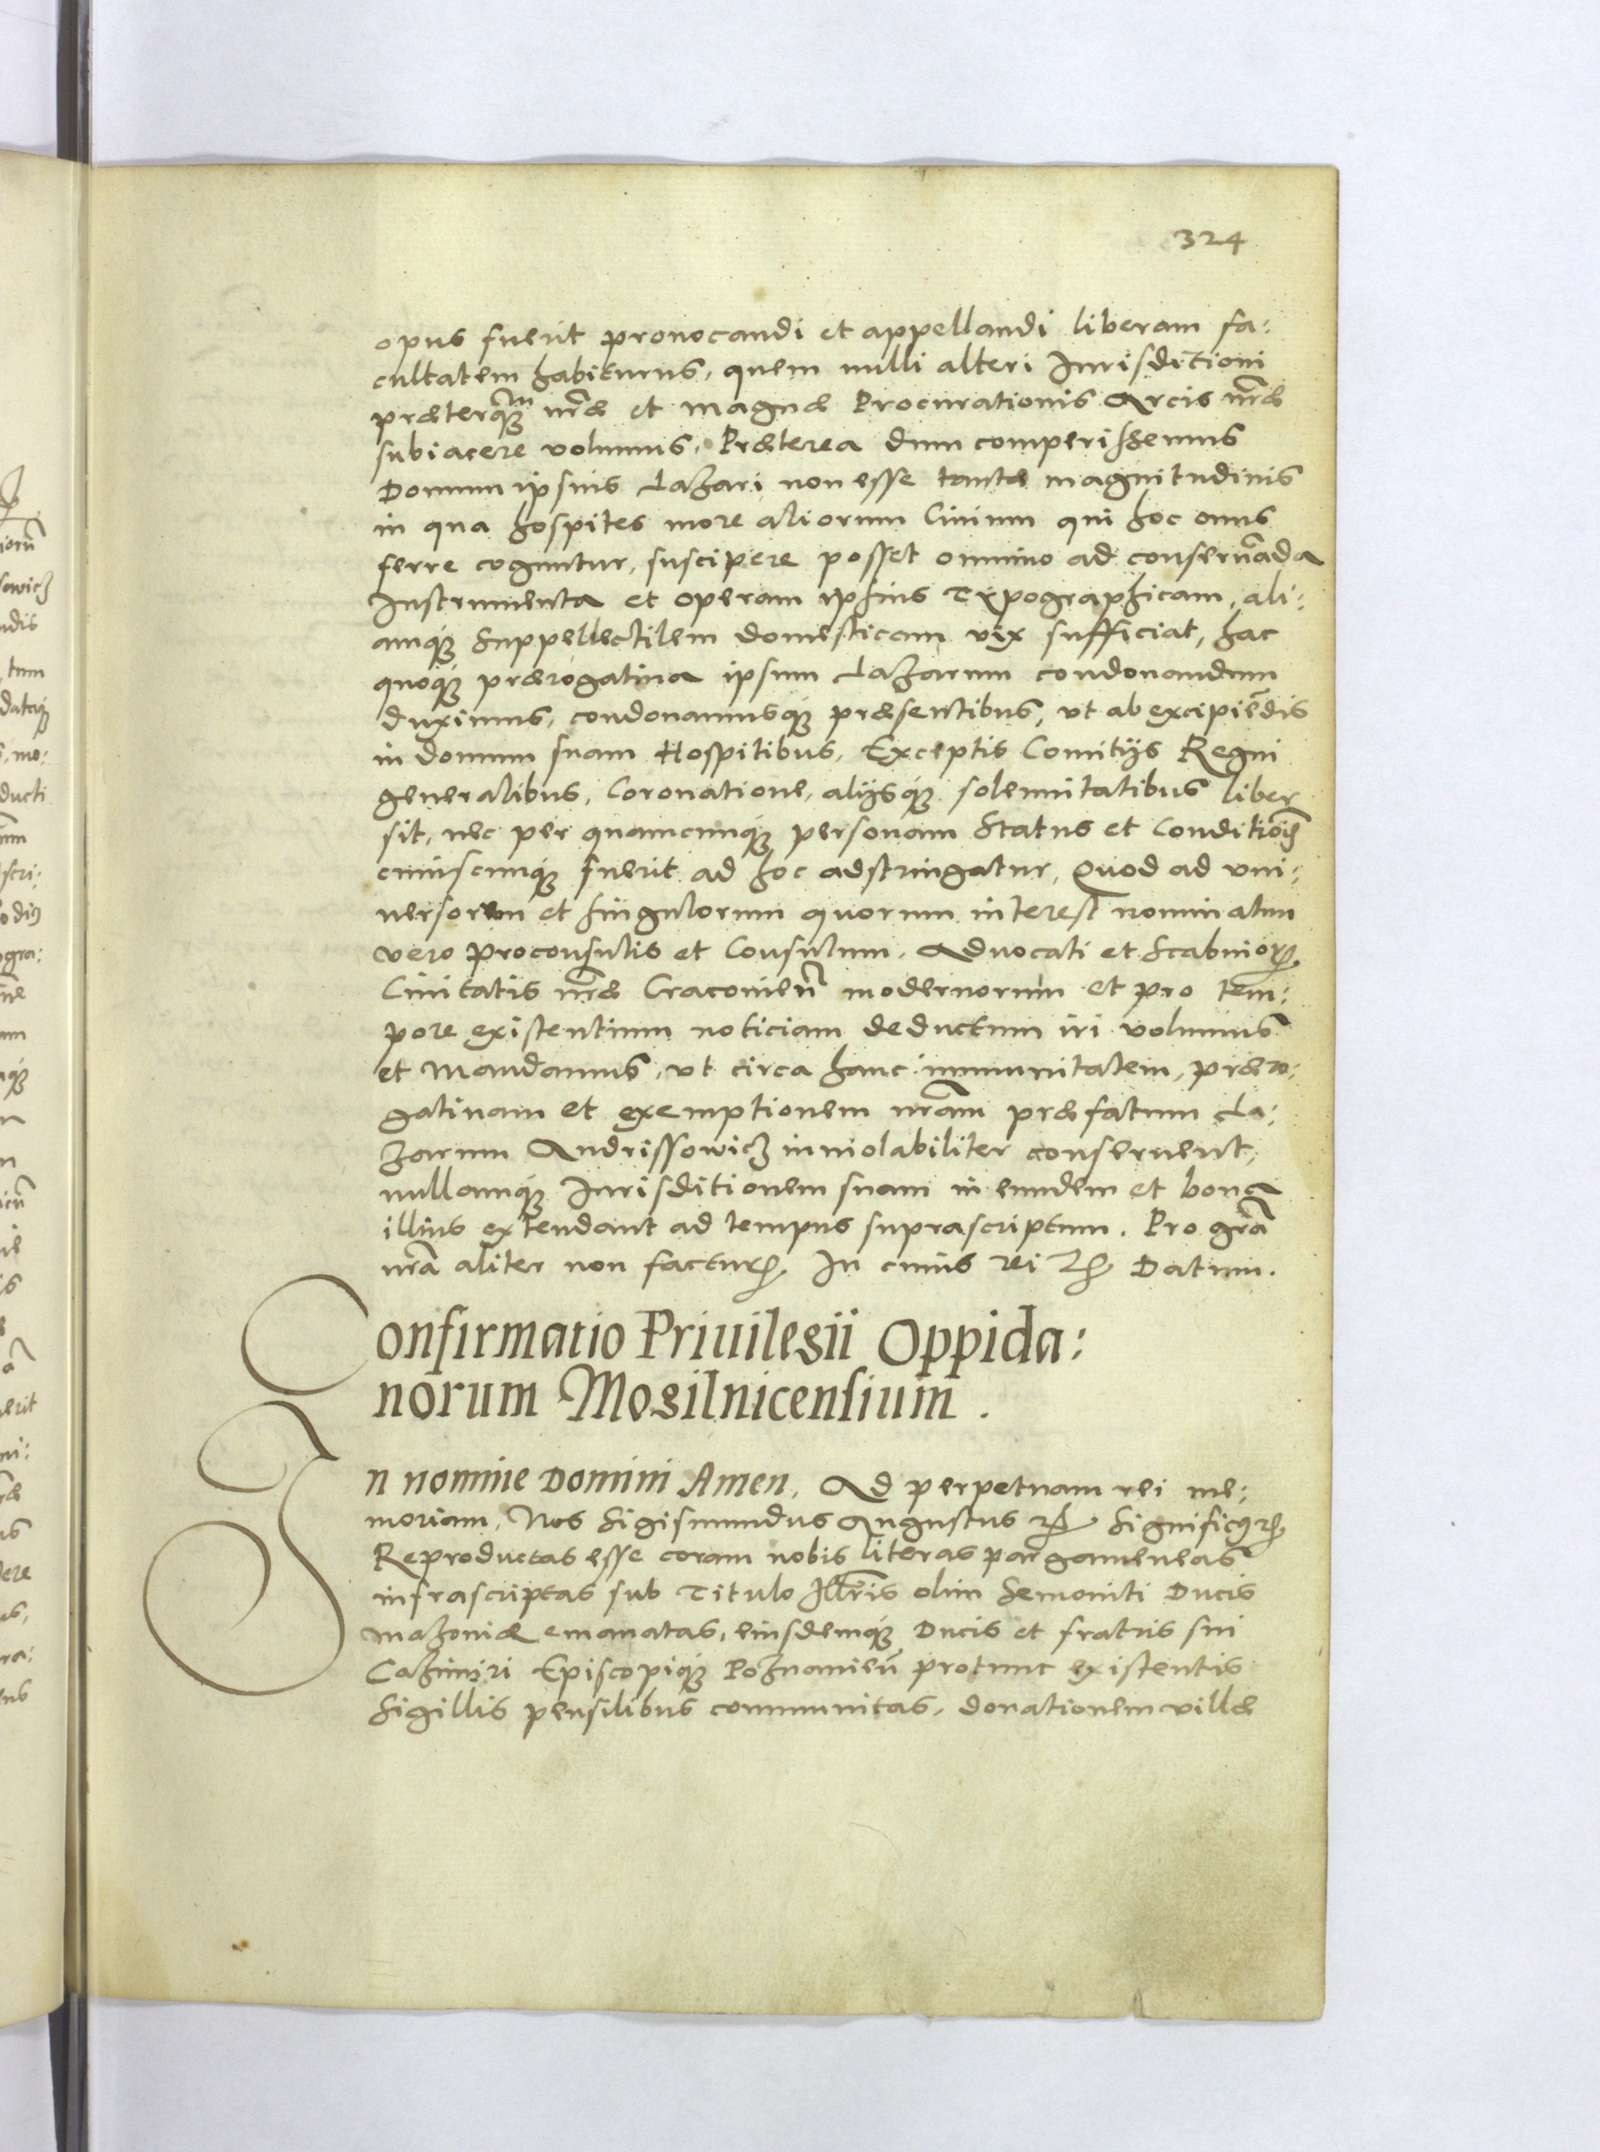 324
opus fuerit prouocandi et appellandi liberam fa:
cultatem habiturus, quem nulli alteri Iurisdictioni
præterq̃m nr̃æ et magnæ Procurationis Arcis nr̃æ
subiacere volumus. Præterea dum comperissemus
Domum ipsius Lazari non esse tantæ magnitudinis
in qua hospites more aliorum Ciuium qui hoc onus
ferre coguntur, suscipere posset omnino ad conseruãda
Instrumenta et operam ipsius Typographicam, ali:
amq́ue Suppellectilem domesticam vix sufficiat, hac
quoq́ue prærogatiua ipsum Lazarum condonandum
duximus, condonamusq́ue præsentibus, vt ab excipiẽdis
in domum suam Hospitibus, Exceptis Comitijs Regni
generalibus, Coronatione, alijsq́ue solennitatibus liber
sit, nec per quamcunq́ue personam Status et Conditiõis
cuiuscunq́ue fuerit ad hoc adstringatur, Quod ad vni:
uersorum et singulorum quorum interest nominatim
vero Proconsulis et Consulum, Aduocati et Scabinorꝝ
Ciuitatis nr̃æ Cracouien̄ modernorum et pro tem:
pore existentium noticiam deductum iri volumus
et Mandamus, vt circa hanc immunitatem, præro:
gatiuam et exemptionem nr̃am præfatum La:
zarum Andrissowicz inuiolabiliter conseruent,
nullamq́ue Iurisditionem suam in eundem et bona
illius extendant ad tempus suprascriptum. Pro gr̃a
nr̃a aliter non facturꝝ. In cuius rei &c. Datum.
Confirmatio Priuilegii Oppida:
norum Mogilnicensium.
In nomine Domini Amen. Ad perpetuam rei me:
moriam. Nos Sigismundus Augustus &c. Significꝰ &c.
Reproductas esse coram nobis literas pargameneas
infrascriptas sub Titulo Illr̃is olim Semouiti Ducis
Mazouiæ emanatas, eiusdemq́ue Ducis et fratris sui
Cazimiri Episcopiq́ue Poznanien̄ protunc existentis
Sigillis pensilibus communitas, donationem villæ